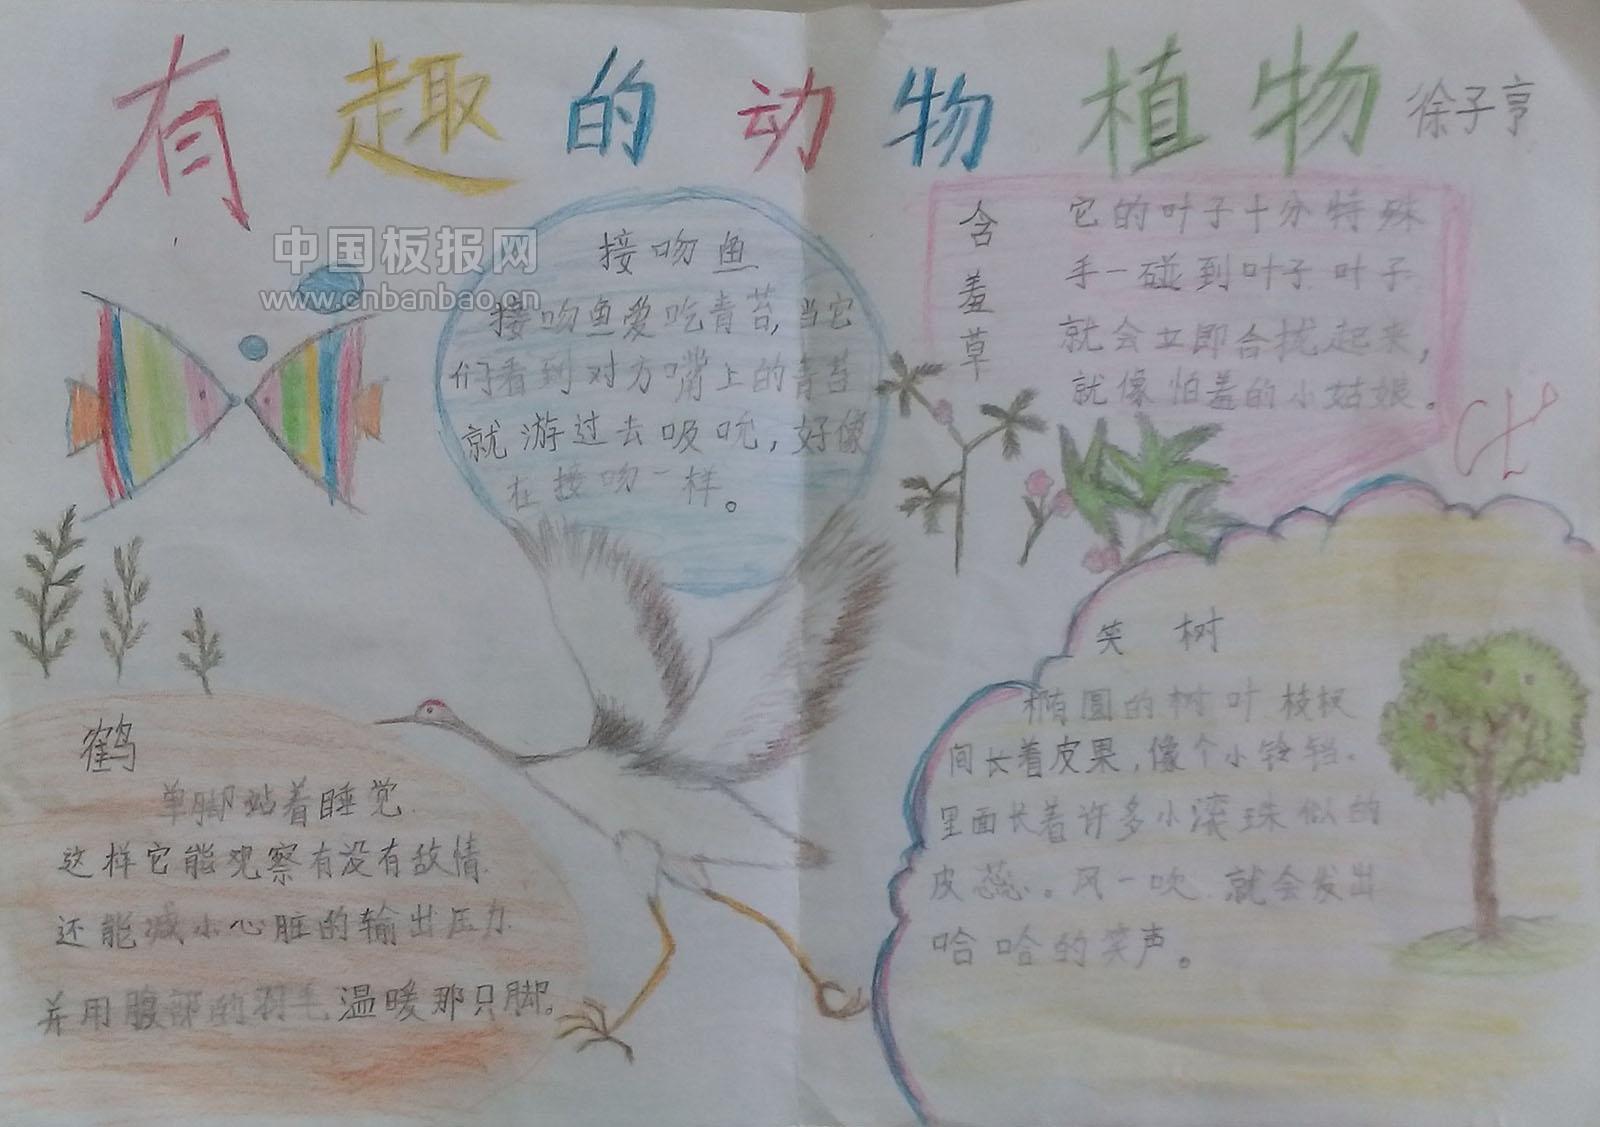 有趣的动物植物 徐子亨
中国板报网
www.cnbanbao.cn
接吻鱼
接吻鱼爱吃青苔,当它
们看到对方嘴上的青苔
就游过去吸吮,好像
在接吻一样。
含羞草
它的叶子十分特殊
手一碰到叶子 叶子
就会立即合拢起来,
就像怕羞的小姑娘。
鹤
单脚站着睡觉.
这样它能观察有没有敌情.
还能减小心脏的输出压力.
并用腹部的羽毛温暖那只脚。
笑树
椭圆的树叶枝杈
间长着皮果,像个小铃铛.
里面长着许多小滚珠似的
皮蕊。风一吹.就会发出
哈哈的笑声。